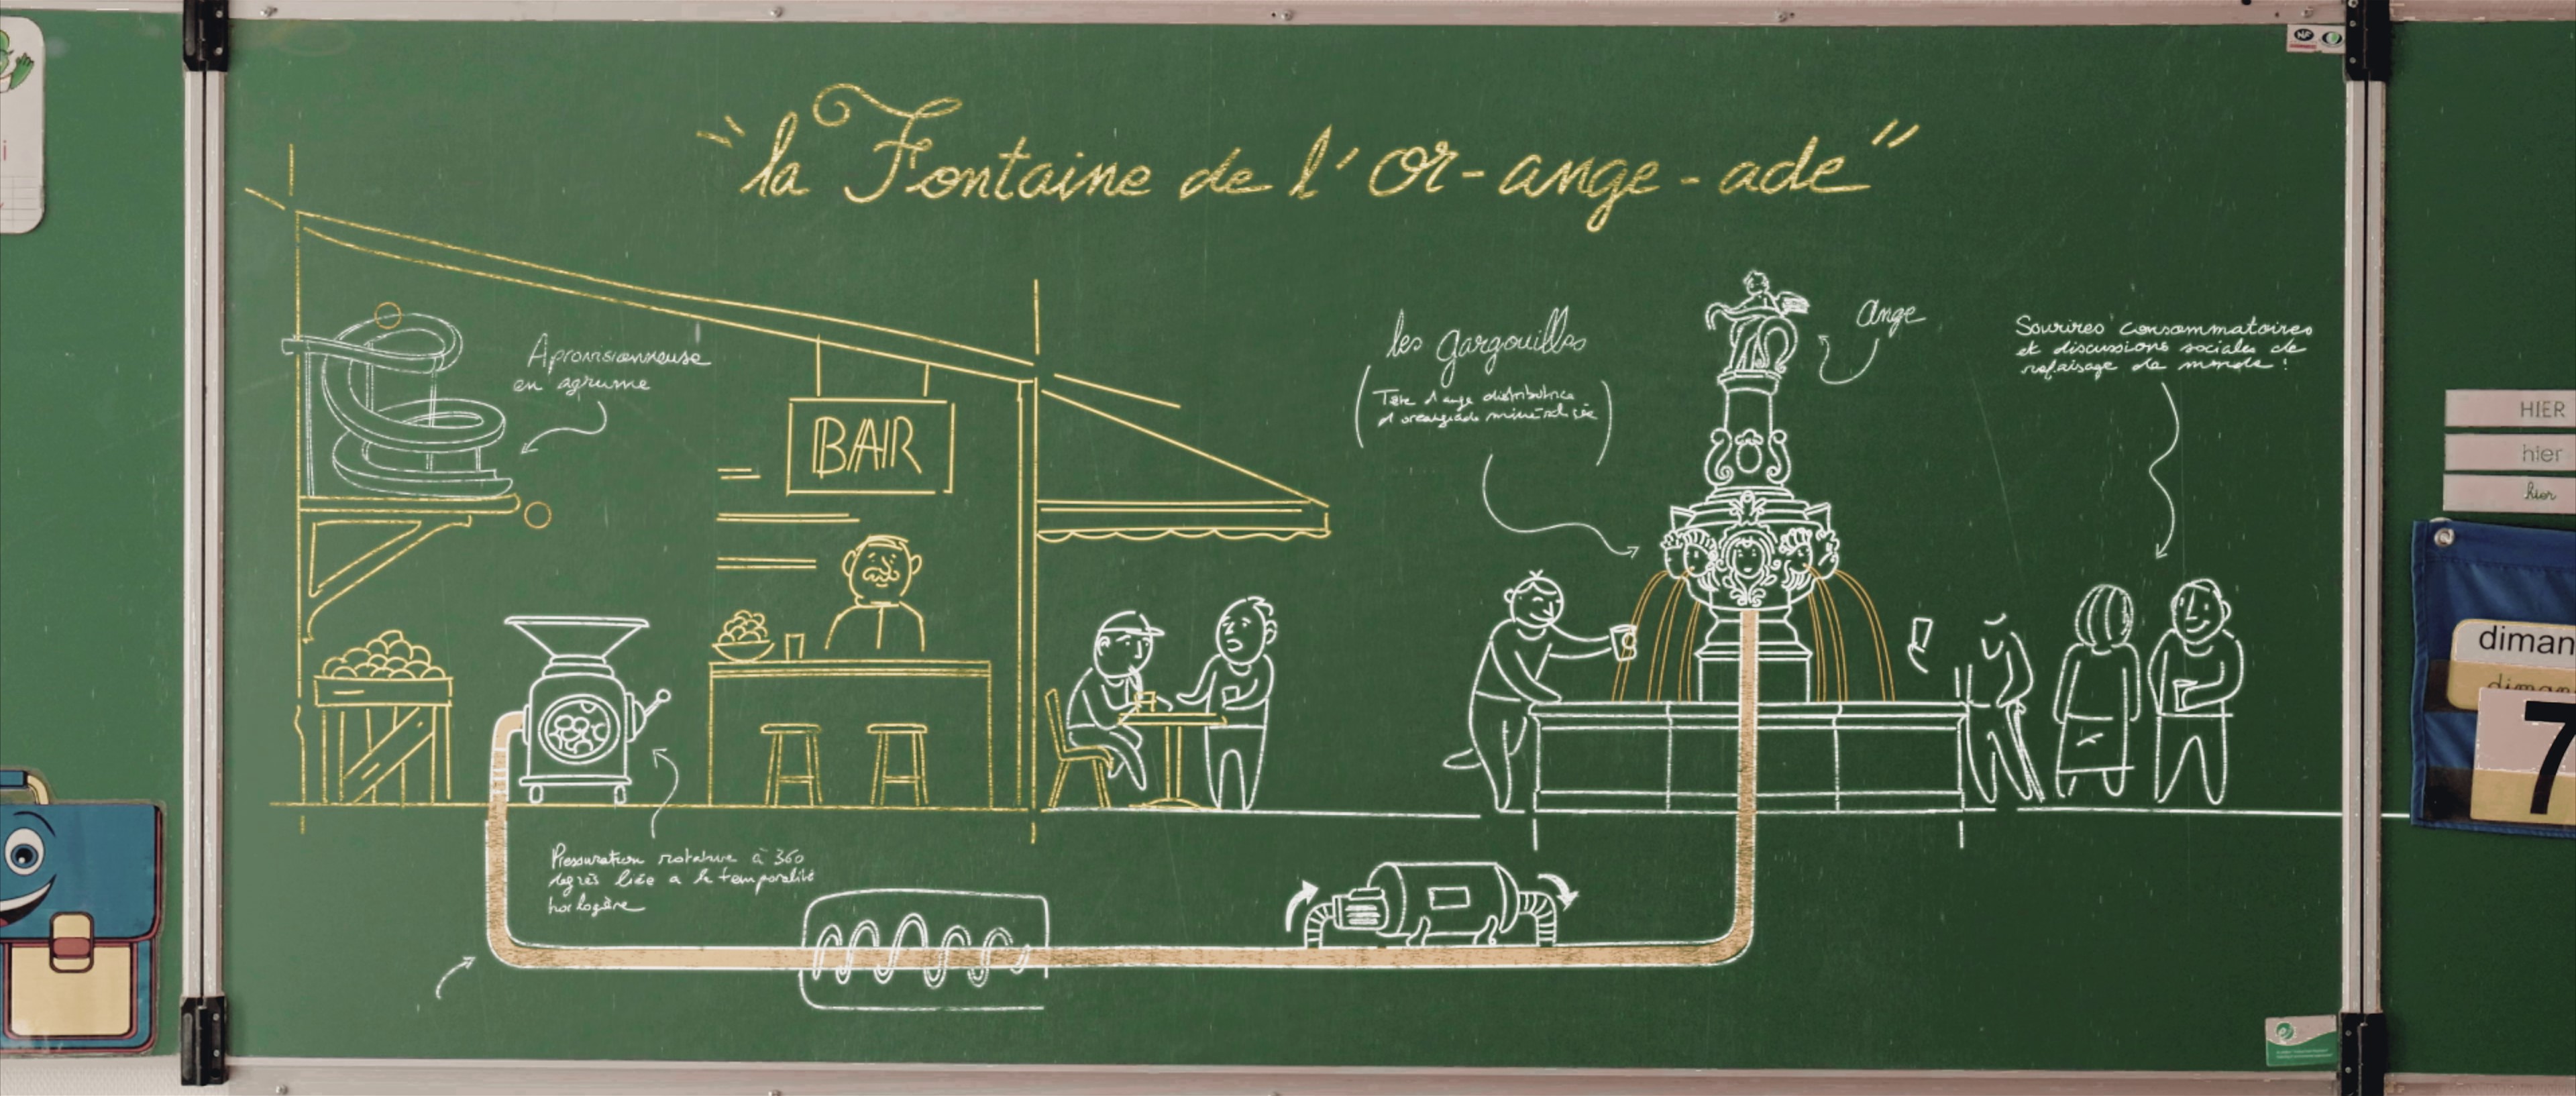 "la Fontaine de l'or-ange-ade"
Aprovisionneuse
en agrume
BAR
les gargouilles
(Tête d'ange distributrice
d'orangeade minéralisée)
Ange
Sourires consommatoires
et discussions sociales de
refaisage de monde !
Pressuration rotative à 360
degrés liée a la temporalité
horlogère
HIER
hier
hier
diman
diman
7
i
NF